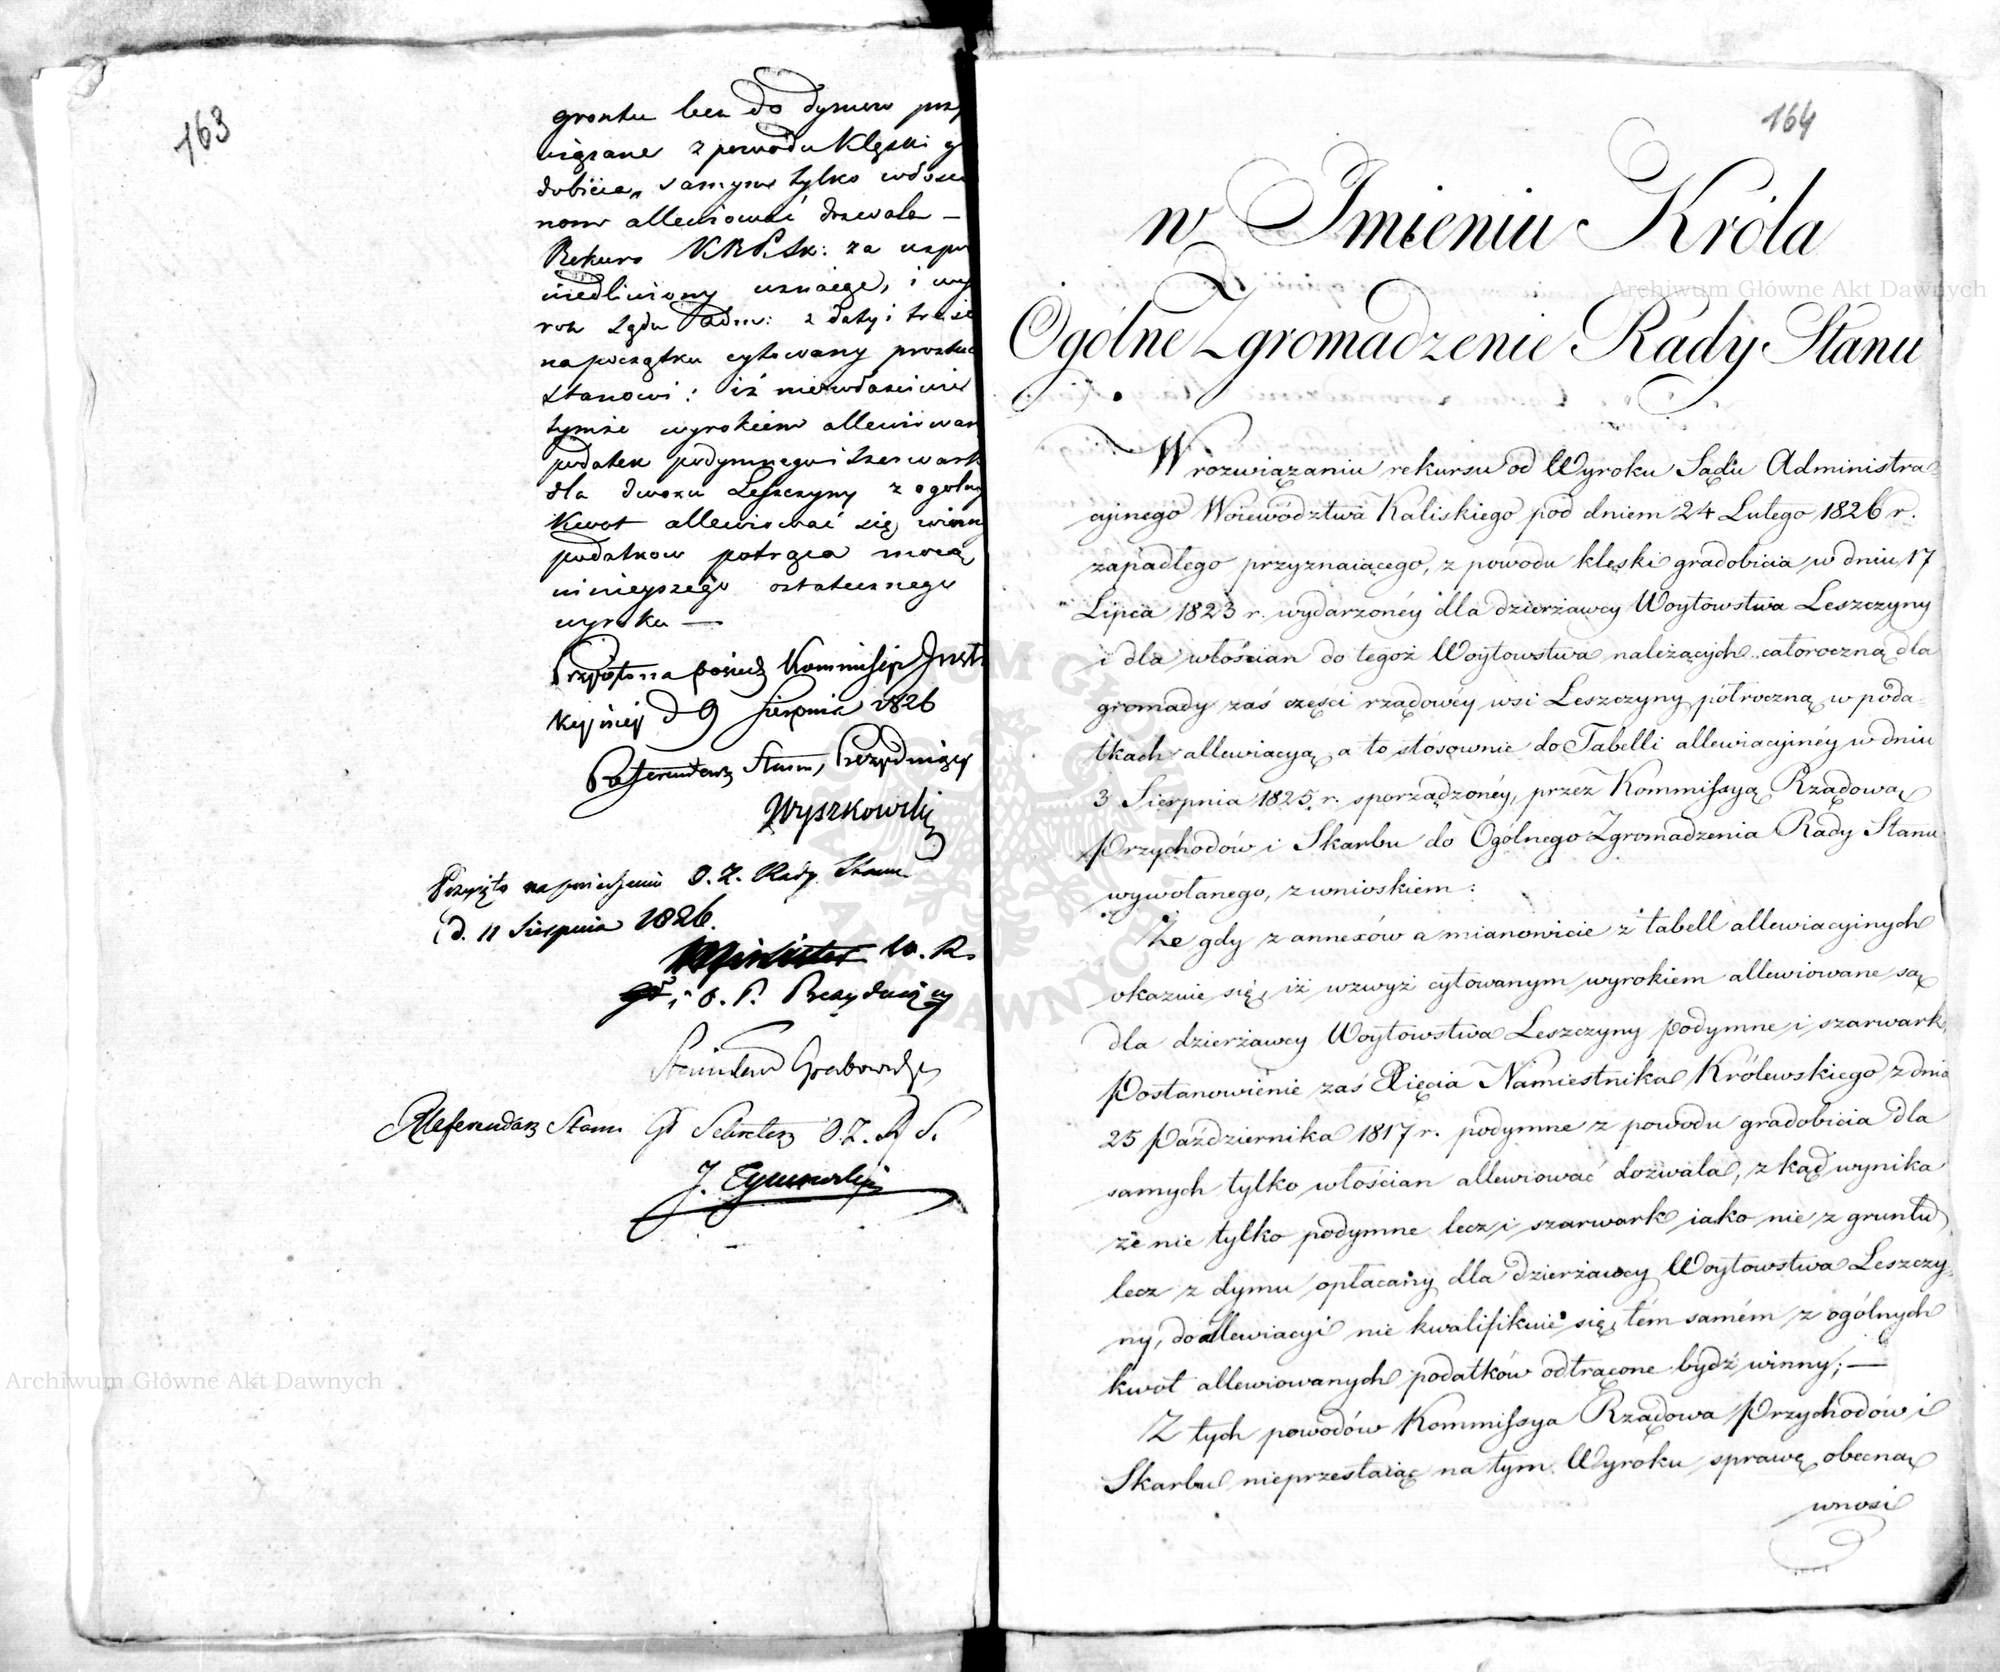 163
gruntu lecz do dymow przy
wiązane z powodu klęski g
dobicia, samym tylko włości
nom allewiować dozwala —
Rekurs KRPSk: za uspra
wiedliwiony uznaiąc, i wy
rok Sądu Adm: z daty i treści
na początku cytowany prostuiąc
stanowi: iż niewłaściwie
tymże wyrokiem allewiowan
podatek podymnego i szarwark
dla dworu Leszczyny z ogolnych
kwot allewiować się winnych
podatkow potrąca mocą
ninieyszego ostatecznego
wyroku —
Przyięto na posiedz Kommissyi Instr
kcyjnej d 9 Sierpnia 1826
Referendarz Stanu, Prezyduiący
Wyszkowski
Przyięto na posiedzeniu O. Z. Rady Stanu
d. 11 Sierpnia 1826.
Minister W. R.
i O. P. Prezyduiący
Stanisław Grabowski
Referendarz Stanu Gł Sekretarz O. Z. R S.
J. Tymowski
164
w Imieniu Króla
Ogólne Zgromadzenie Rady Stanu
W rozwiązaniu rekursu od Wyroku Sądu Administra-
cyjnego Woiewództwa Kaliskiego pod dniem 24 Lutego 1826 r.
zapadłego przyznaiącego, z powodu klęski gradobicia w dniu 17
Lipca 1823 r. wydarzonéy dla dzierżawcy Woytowstwa Leszczyny
i dla włościan do tegoż Woytowstwa należących całoroczną dla
gromady zaś części rządowéy wsi Leszczyny półroczną w poda-
tkach allewiacyą, a to stósownie do Tabelli allewiacyinéy w dniu
3 Sierpnia 1825 r. sporządzonéy, przez Kommissyą Rządową
Przychodów i Skarbu do Ogólnego Zgromadzenia Rady Stanu
wywołanego, z wnioskiem:
Że gdy z annexów a mianowicie z tabell allewiacyinych
okazuie się, iż wzwyż cytowanym wyrokiem allewiowane są
dla dzierżawcy Woytowstwa Leszczyny podymne i szarwark,
Postanowienie zaś Xięcia Namiestnika Królewskiego z dnia
25 Października 1817 r. podymne z powodu gradobicia dla
samych tylko włościan allewiować dozwala, z kąd wynika
że nie tylko podymne lecz i szarwark iako nie z gruntu
lecz z dymu opłacany dla dzierżawcy Woytowstwa Leszczy-
ny, do allewiacyi nie kwalifikuie się, tém samém z ogólnych
kwot allewiowanych podatków odtrącone bydź winny; —
Z tych powodów Kommissya Rządowa Przychodów i
Skarbu nieprzestaiąc na tym Wyroku sprawę obecną
wnosi
Archiwum Główne Akt Dawnych
Archiwum Główne Akt Dawnych